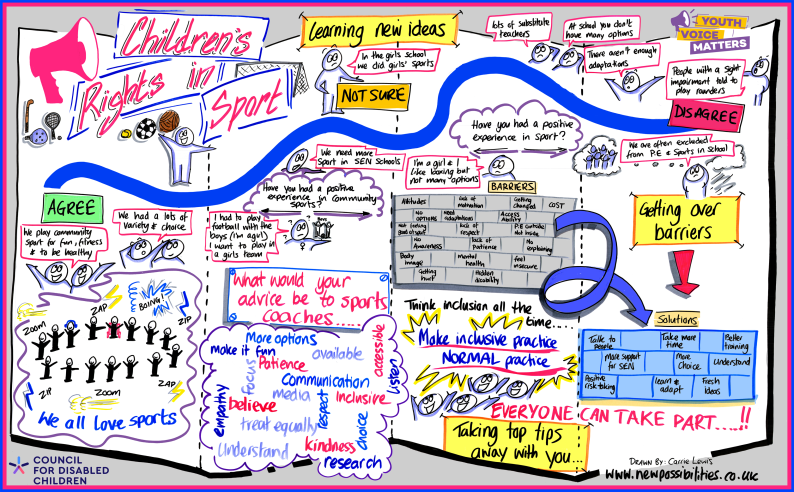 Children's
Rights in
Sport
Learning new ideas
In the girls school
we did girls' sports
NOT SURE
lots of substitute
teachers
At school you don't
have many options
There aren't enough
adaptations
YOUTH
VOICE
MATTERS
People with a sight
impairment told to
play rounders
DISAGREE
Have you had a positive
experience in sport?
We are often excluded
from P.E & Sports in School
We need more
Sport in SEN Schools
Have you had a positive
experience in community
sports?
I'm a girl & I
like boxing but
not many options
BARRIERS
AGREE
We play community
sport for fun, fitness
& to be healthy
We had a lots of
variety & choice
I had to play
football with the
boys (I'm a girl)
I want to play in
a girls team
Attitudes
lack of
motivation
Getting
changed
COST
NO
OPTIONS
Need
adaptations
Access
ability
Not feeling
good of self
lack of
respect
P.E outside
not inside
NO
Awareness
lack of
patience
No
explaining
Body
image
Mental
health
feel
insecure
Getting
hurt
Hidden
disability
Getting over
barriers
What would your
advice be to sports
coaches.....
Think inclusion all the
time....
Make inclusive practice
NORMAL practice
Solutions
Talk to
people
Take more
time
Better
training
More support
for SEN
More
Choice
Understand
Positive
risk taking
learn &
adapt
Fresh
Ideas
ZOOM
ZAP
BOING
ZIP
ZIP
Zoom
ZAP
We all love sports
More options
make it fun
available
accessible
focus
Patience
Communication
listen
empathy
believe
media
respect
inclusive
treat equally
choice
Understand
kindness
research
EVERYONE CAN TAKE PART.....!!
Taking top tips
away with you...
COUNCIL
FOR DISABLED
CHILDREN
DRAWN BY: Carrie Lewis
www.newpossibilities.co.uk